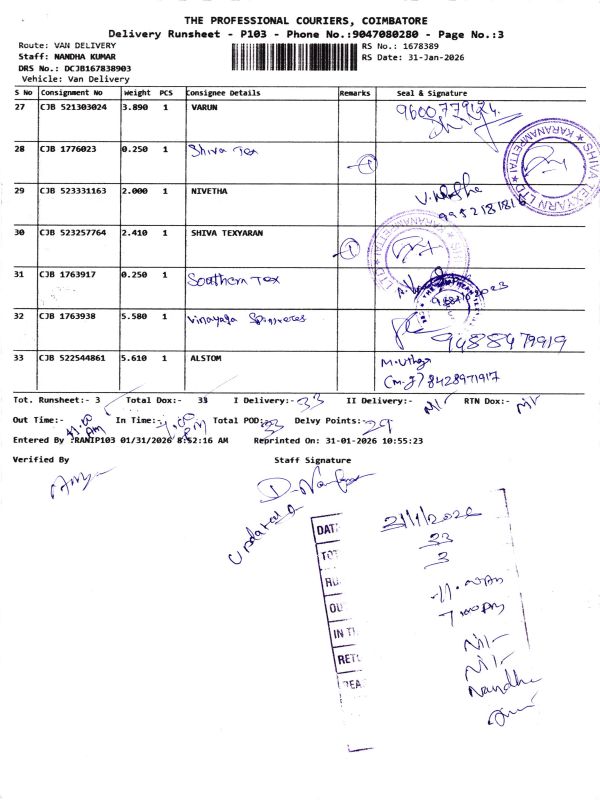 THE PROFESSIONAL COURIERS, COIMBATORE
Delivery Runsheet - P103 - Phone No.:9047080280 - Page No.:3
Route: VAN DELIVERY RS No.: 1678389
Staff: NANDHA KUMAR RS Date: 31-Jan-2026
DRS No.: DCJB167838903
Vehicle: Van Delivery
S No Consignment No Weight PCS Consignee Details Remarks Seal & Signature
27 CJB 521303024 3.890 1 VARUN 9600779124
28 CJB 1776023 0.250 1 Shiva Tex 1
SHIVA TEXYARN LTD ★ KARANAMPETTAI ★
29 CJB 523331163 2.000 1 NIVETHA
9952181816
30 CJB 523257764 2.410 1 SHIVA TEXYARAN 1
31 CJB 1763917 0.250 1 Southern Tex
32 CJB 1763938 5.580 1 Vinayaga 9488479919
33 CJB 522544861 5.610 1 ALSTOM
8428971917
Tot. Runsheet:- 3 Total Dox:- 33 I Delivery:- 33 II Delivery:- Nil RTN Dox:- Nil
Out Time:- 11.00 AM In Time:- 7.00 PM Total POD:- 33 Delvy Points:- 29
Entered By :RANIP103 01/31/2026 8:52:16 AM Reprinted On: 31-01-2026 10:55:23
Verified By Staff Signature
Updated
31/1/2026
33
3
11.00 AM
7.00 PM
IN TI
Nil
RET
Nil
Nandha